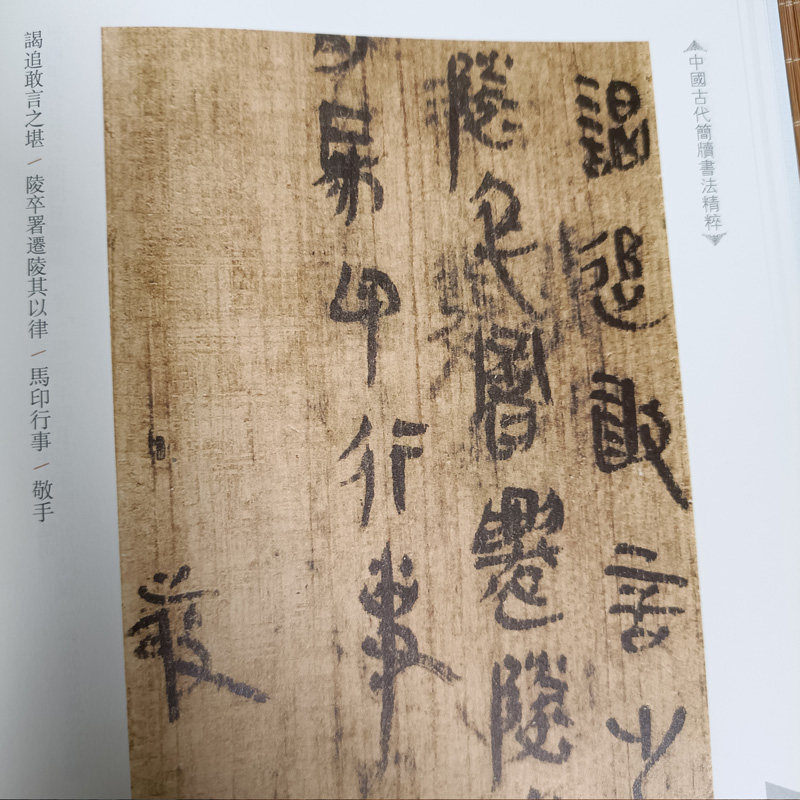 中國古代簡牘書法精粹
謁追敢言之
陵卒署遷陵
馬印行事
敬
謁追敢言之堪 / 陵卒署遷陵其以律 / 馬印行事 / 敬手